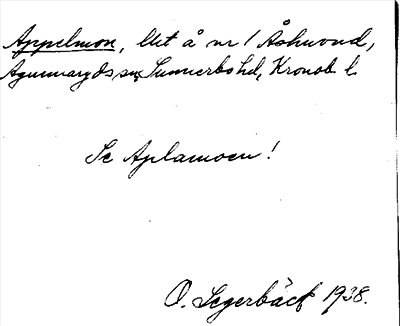 Appelmon, Utt å nr 1 Åshuvud,
Agunnaryds sn, Sunnerbo hd, Kronob. l.
Se Aplamoen!
O. Segerbäck 1938.